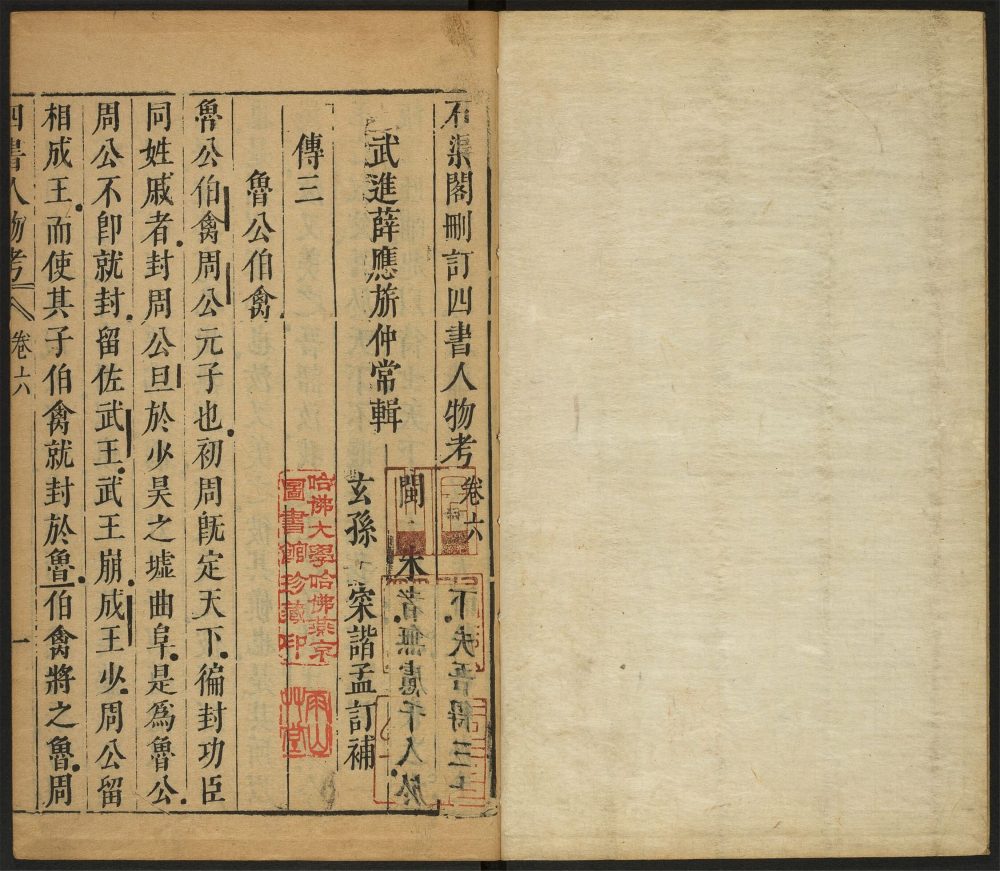 石渠閣刪訂四書人物考卷六
武進薛應旂仲常輯
閩 朱
玄孫 寀諧孟訂補
傳三
魯公伯禽
魯公伯禽周公元子也初周旣定天下徧封功臣
同姓戚者封周公旦於少昊之墟曲阜是爲魯公
周公不卽就封留佐武王武王崩成王少周公留
相成王而使其子伯禽就封於魯伯禽將之魯周
四書人物考 卷六 一
下夫吾得三十
者無慮千人於
哈佛大學哈佛燕京
圖書館珍藏印
雨山
草堂